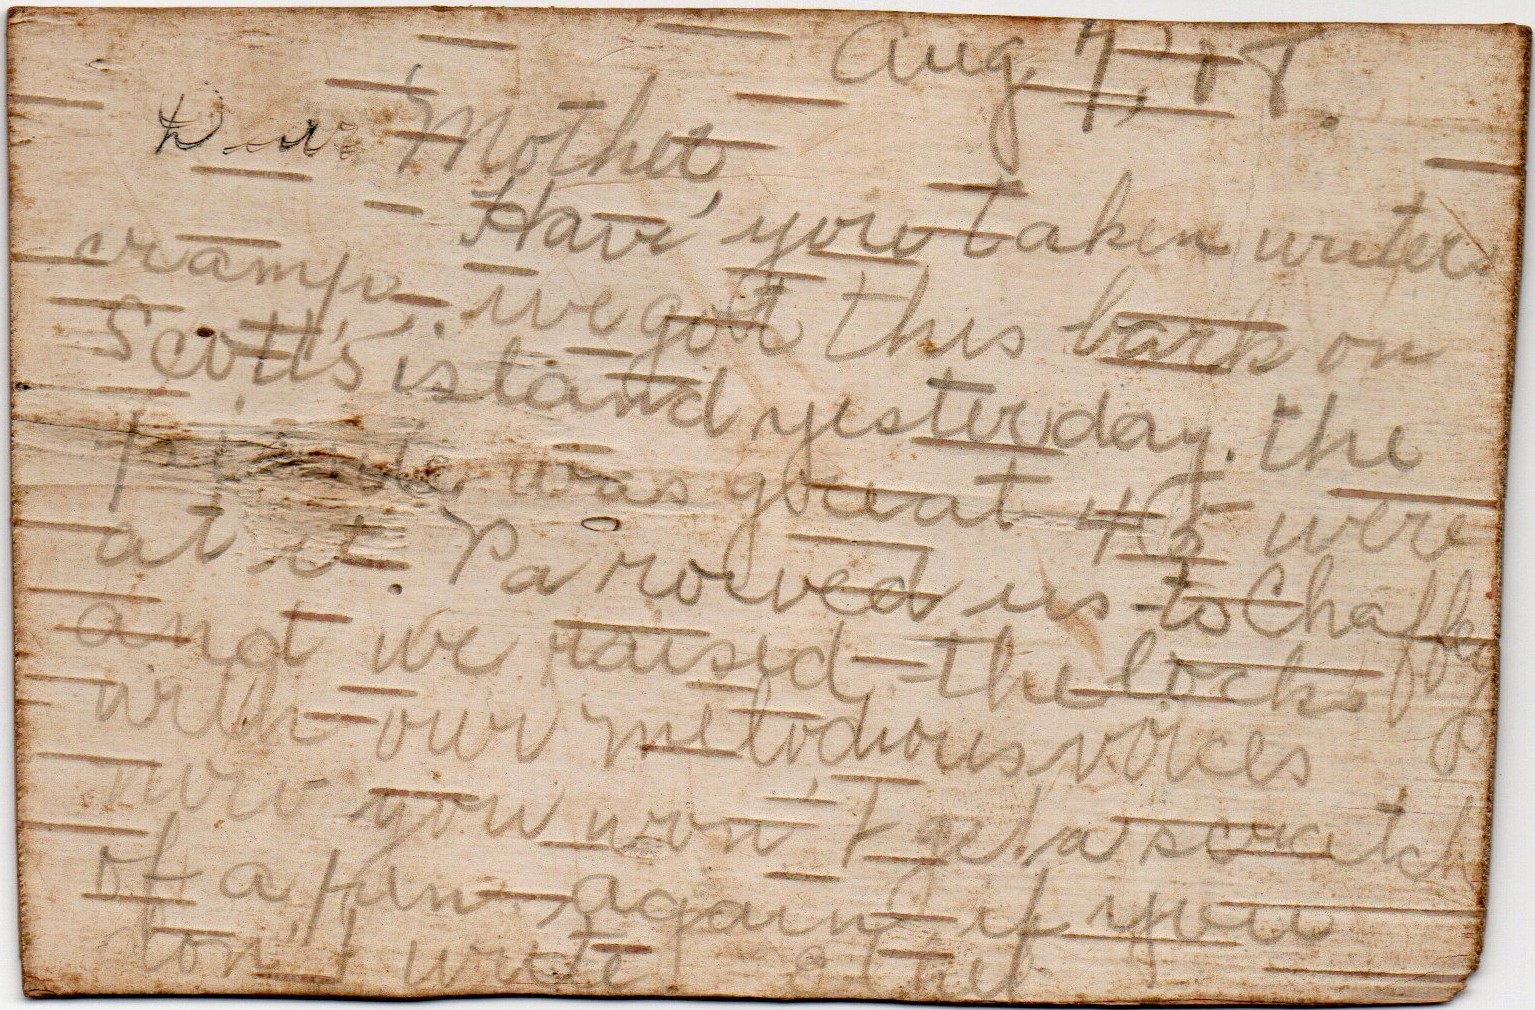 Aug 7, '08.
Dear Mother,
Have you taken writers
cramps. we got this bark on
Scott's island yesterday. the
picnic was great 45 were
at it. Pa rowed us to Chaffeys
and we raised the locks
with our melodious voices
now you won't get a scratch
of a pen again if you
don't write Ethel